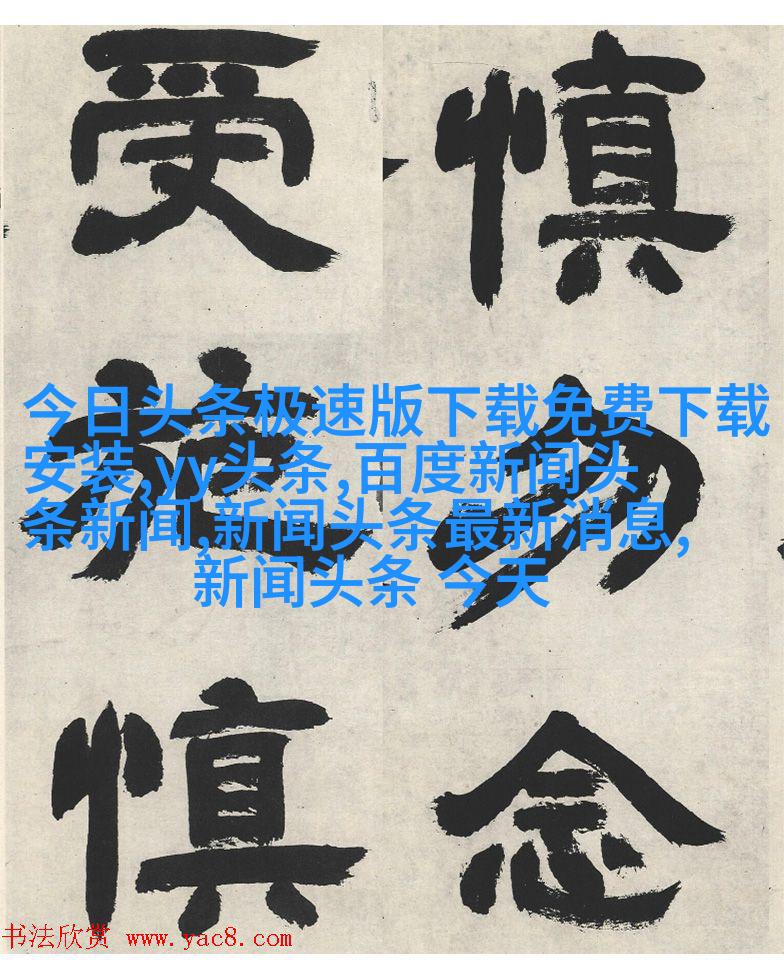 慎勿念
受施慎
今日头条极速版下载免费下载
安装,yy头条,百度新闻头
条新闻,新闻头条最新消息,
新闻头条 今天
书法欣赏 www.yac8.com